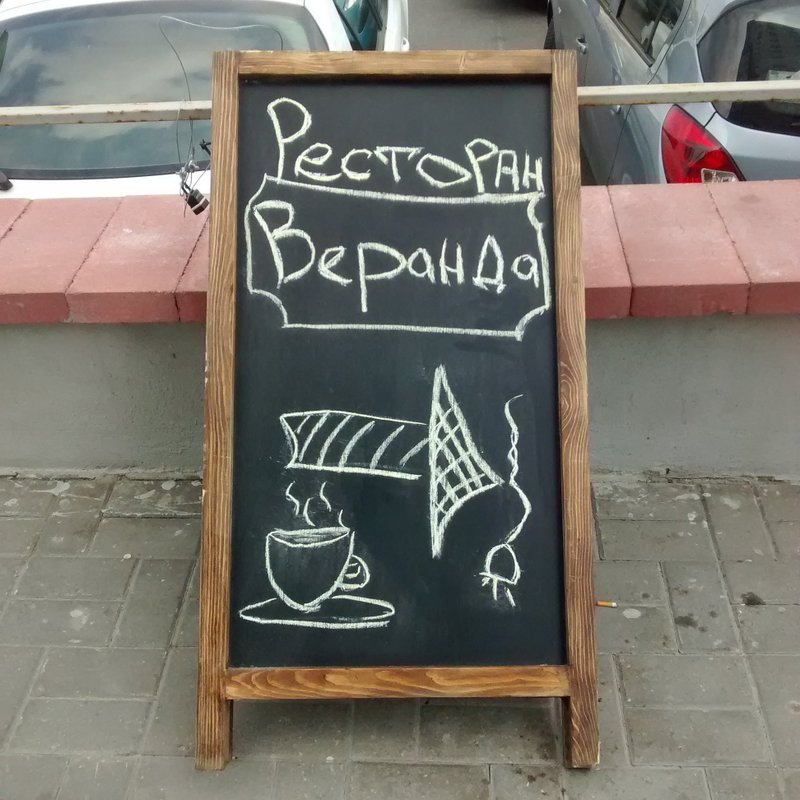 Ресторан
Веранда